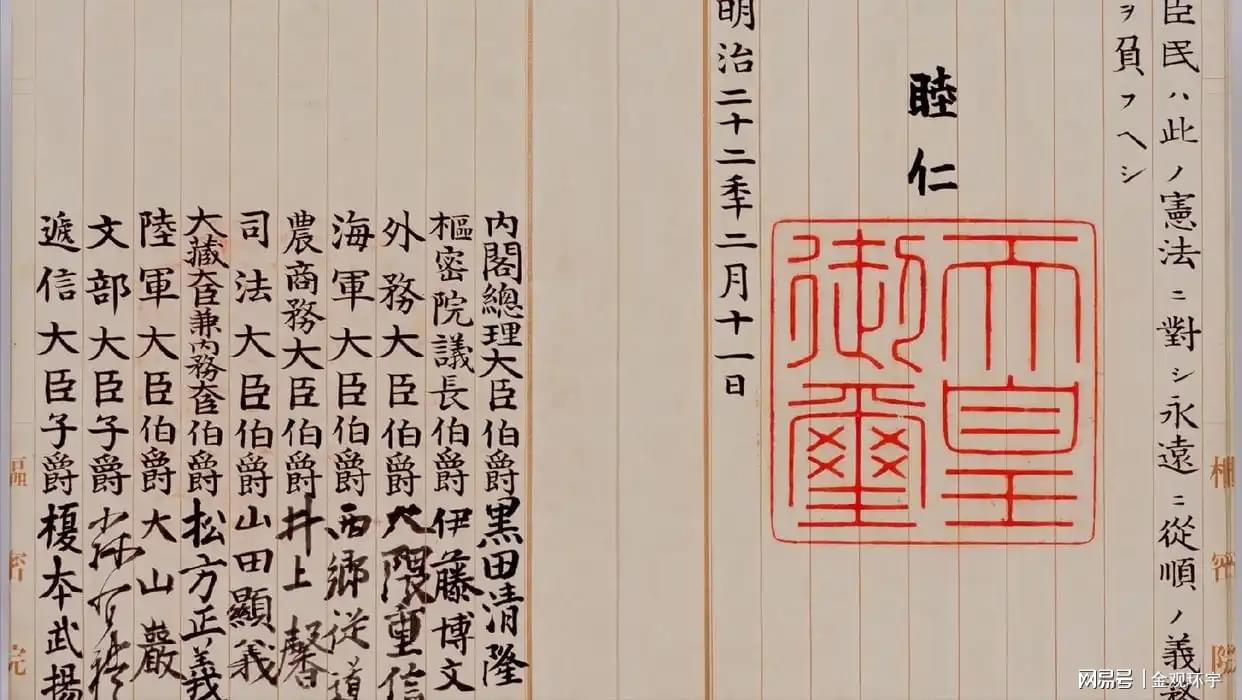 臣民ハ此ノ憲法ニ對シ永遠ニ從順ノ義務
ヲ負フヘシ
睦仁
天皇
御璽
明治二十二年二月十一日
内閣總理大臣伯爵黒田清隆
樞密院議長伯爵伊藤博文
外務大臣伯爵大隈重信
海軍大臣伯爵西郷従道
農商務大臣伯爵井上馨
司法大臣伯爵山田顯義
大藏大臣兼内務大臣伯爵松方正義
陸軍大臣伯爵大山巌
文部大臣子爵森有禮
遞信大臣子爵榎本武揚
樞密院
樞密院
网易号 | 金观环宇